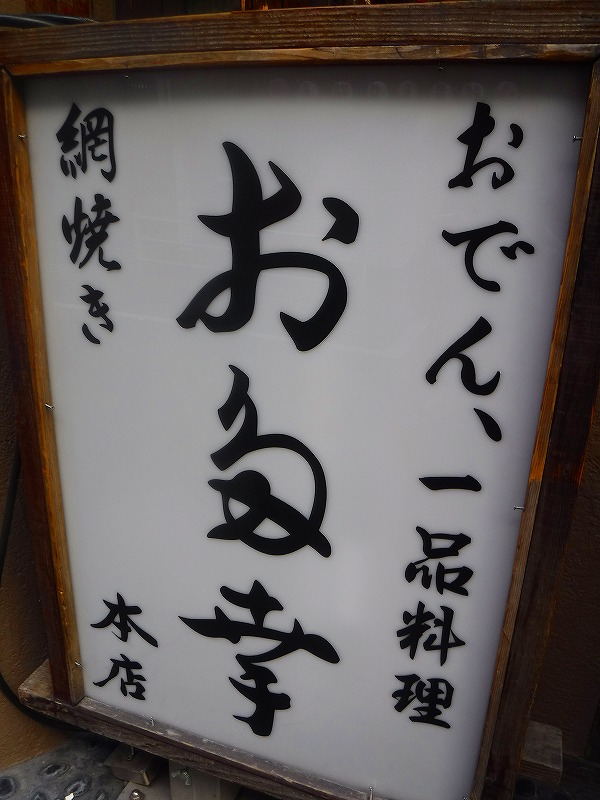 おでん、一品料理
お多幸
網焼き
本店